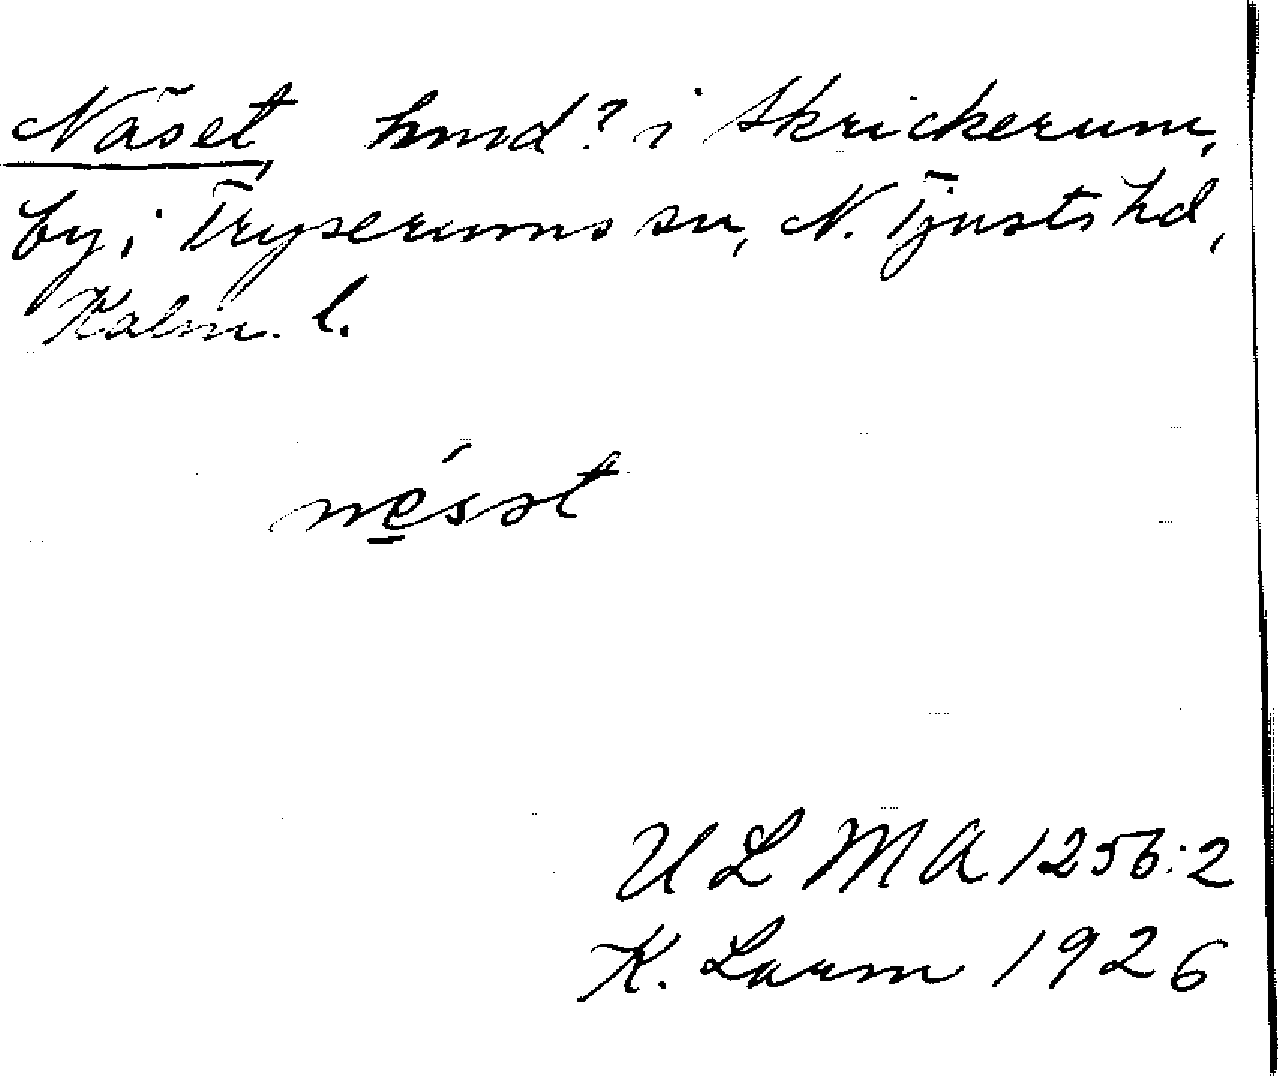 Näset, hmd? i Skrickerum,
by i Tryserums sn, N. Tjusts hd,
Kalm. l.
nésət
ULMA 1256:2
K. Larm 1926